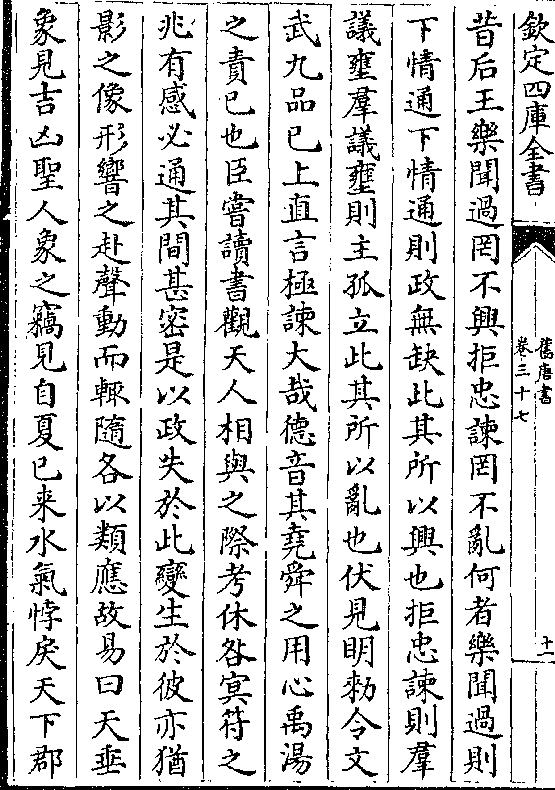 欽定四庫全書
舊唐書
卷三十七
十二
昔后王樂聞過罔不興拒忠諫罔不亂何者樂聞過則
下情通下情通則政無缺此其所以興也拒忠諫則羣
議壅羣議壅則主孤立此其所以亂也伏見明勅令文
武九品已上直言極諫大哉德音其堯舜之用心禹湯
之責已也臣嘗讀書觀天人相與之際考休咎冥符之
兆有感必通其間甚密是以政失於此變生於彼亦猶
影之像形響之赴聲動而輒隨各以類應故易曰天垂
象見吉凶聖人象之竊見自夏已来水氣悖戾天下郡